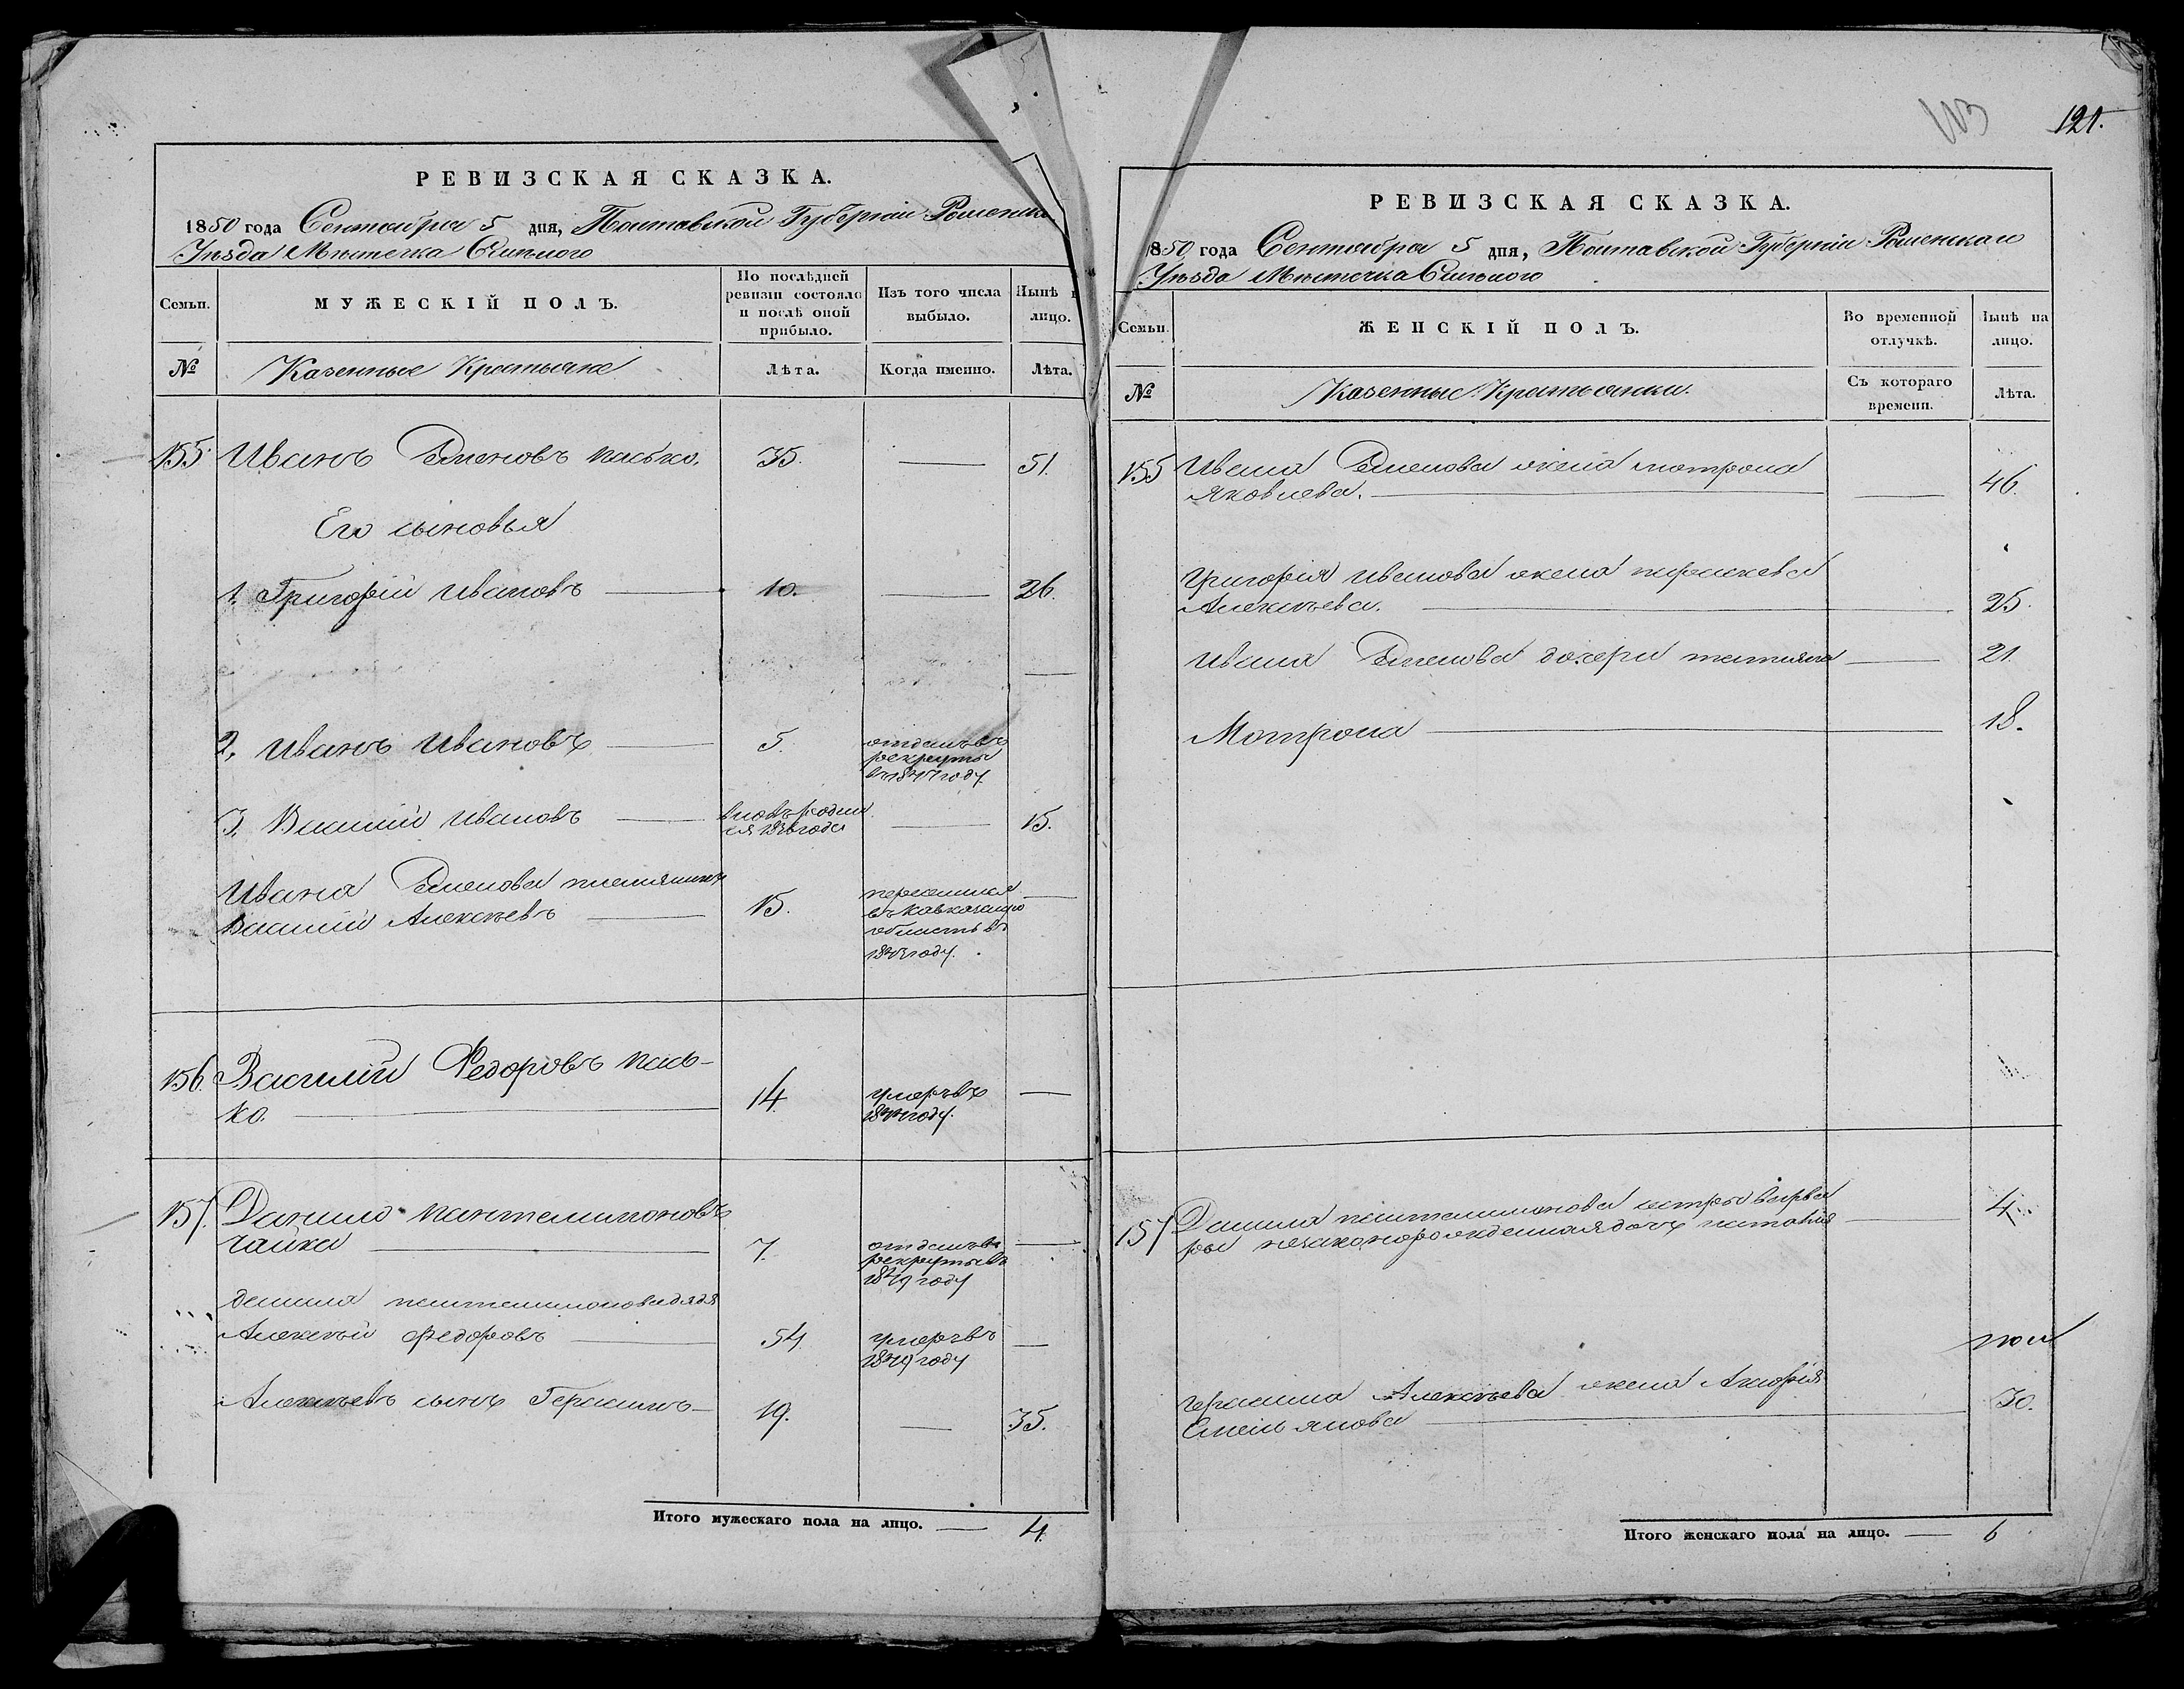 113
121.
РЕВИЗСКАЯ СКАЗКА.
1850 года Сентября 5 дня, Полтавской Губерніи Роменска
Уѣзда Мѣстечка Смѣлого
Семьи.
МУЖЕСКІЙ ПОЛЪ.
По послѣдней ревизіи состояло и послѣ оной прибыло.
Изъ того числа выбыло.
Нынѣ
лицо.
№
Казенные Крестьяне
Лѣта.
Когда именно.
Лѣта.
155 Иванъ Семеновъ Пасько. 35. — 51.
Его сыновья
1. Григорій Ивановъ — 10. — 26.
2. Иванъ Ивановъ — 5. отданъ въ
рекруты
въ 1847 году.
3. Василій Ивановъ — вновь родил
ся 1836 года — 15.
Ивана Семенова племянникъ
Василій Алексѣевъ — 15. переселился —
въ Кавказскую
область въ
году.
156. Василій Федоровъ Пась-
ко. — 14. умеръ въ —
году.
157. Данило Пантелимоновъ
Чайка — 7. отданъ въ —
рекруты въ
1849 году
Данила Пантелимонова дядя
Алексѣй Федоровъ — 54. умеръ въ —
1849 году
Алексѣевъ сынъ Герасимъ — 19. — 35.
Итого мужескаго пола на лицо. — 4.
РЕВИЗСКАЯ СКАЗКА.
1850 года Сентября 5 дня, Полтавской Губерніи Роменскаго
Уѣзда Мѣстечка Смѣлого
Семьи.
ЖЕНСКІЙ ПОЛЪ.
Во временной отлучкѣ.
Нынѣ на лицо.
№
Казенные Крестьянки.
Съ котораго времени.
Лѣта.
155 Ивана Семенова жена Мотрона
Яковлева. — — 46.
Григорія Иванова жена Параскева
Алексѣева. — 25.
Ивана Семенова дочери Татіяна — 21.
Мотрона — 18.
157 Данила Пантелимонова сестры Варва
ры незаконорожденная дочь Наталія — 4
Герасима Алексѣева жена Агафія
Емельянова — 30.
Итого женскаго пола на лицо. — 6